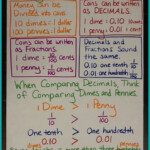 Money can be
Divided into cents
10 dimes = 1 dollar
100 pennies = 1 dollar
Coins can be written
as DECIMALS
1 dime = 0.10
1 penny = 0.01
Coins can be written
as Fractions.
1 dime = 1/10
1 penny = 1/100 cents
Decimals and
fractions Sound
the same.
0.10 one tenth
0.01 one hundredth 1/100
When Comparing Decimals, Think
of Comparing Dimes and Pennies.
1 Dime > 1 Penny
1/10 1/100
One tenth > One hundredth
0.10 > 0.01